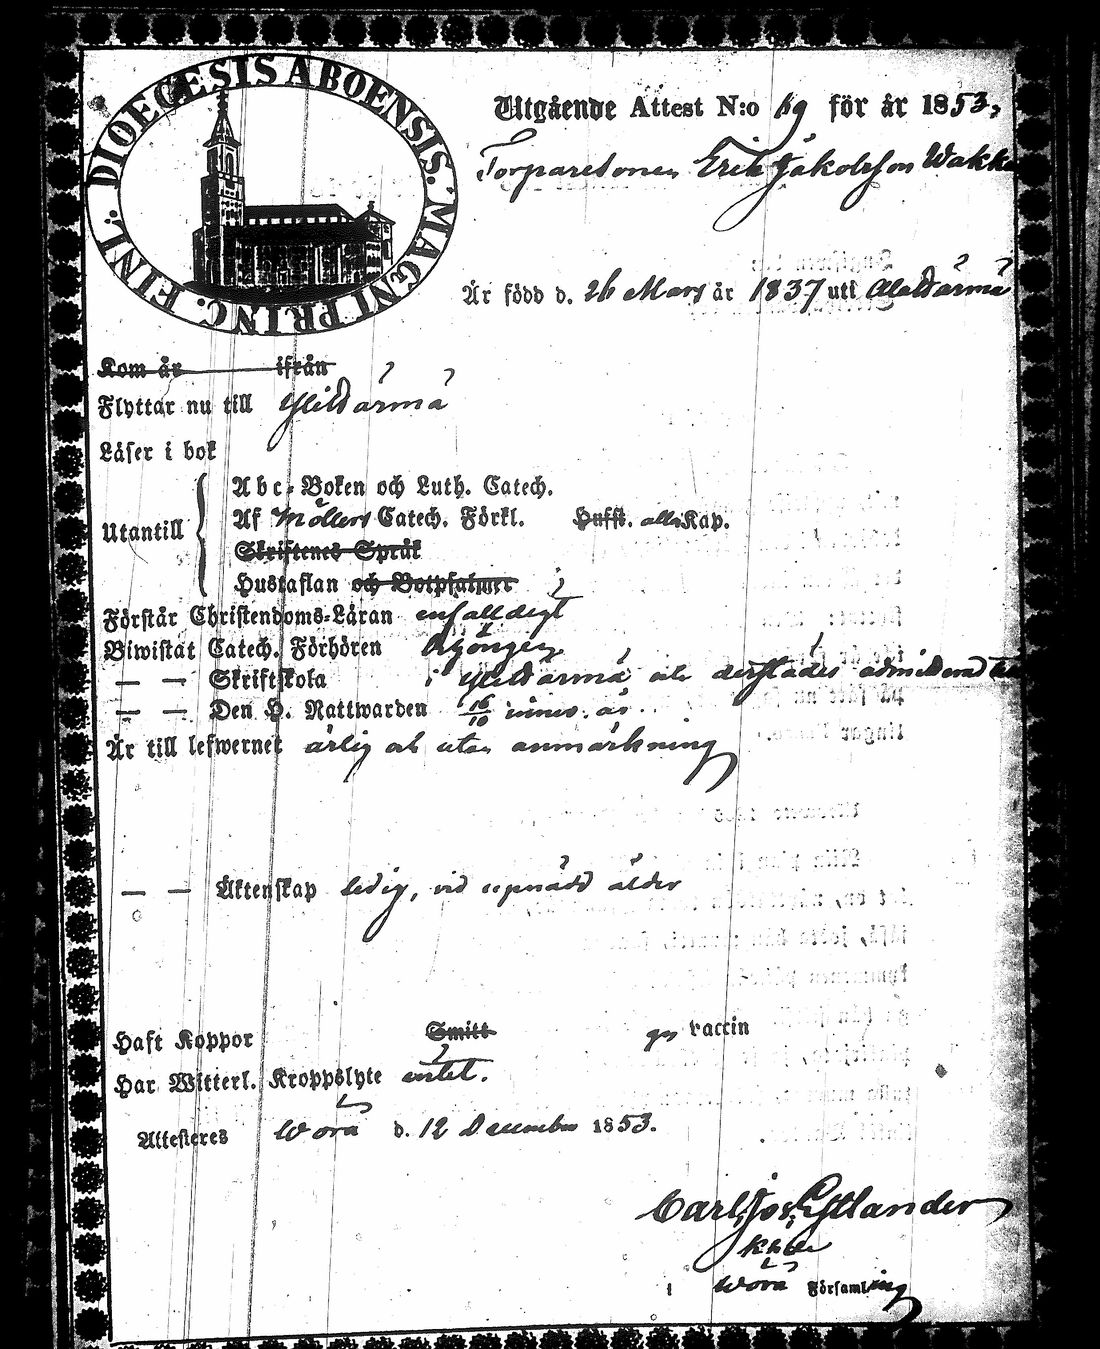 DIOECESIS ABOENSIS. MAGNI PRINC. FINL.
Utgående Attest N:o 19 för år 1853,
Torparesonen Erik Jakobsson Wakka
Är född d. 26 Mars år 1837 uti Alahärmä
Kom år ifrån
Flyttar nu till Ylihärmä
Läser i bok
Utantill
Abc-Boken och Luth. Catech.
Af Möllers Catech. Förkl. Hufst. alla Kap.
Skriftenes Språk
Hustaflan och Botpsalmer
Förstår Christendoms-Läran enfalldigt
Biwistat Catech. Förhören
— — Skriftskola i Ylihärmä och derstädes admitterad till
— — Den H. Nattwarden 16/10 innev. år
Är till lefwernet ärlig och utan anmärkning
— — Äktenskap ledig, vid uppnådd ålder
Haft Koppor Smitt vaccin
Har Witterl. Kroppslyte intet.
Attesteres Wörå d. 12 December 1853.
Carl Jos.
i Wörå Församling